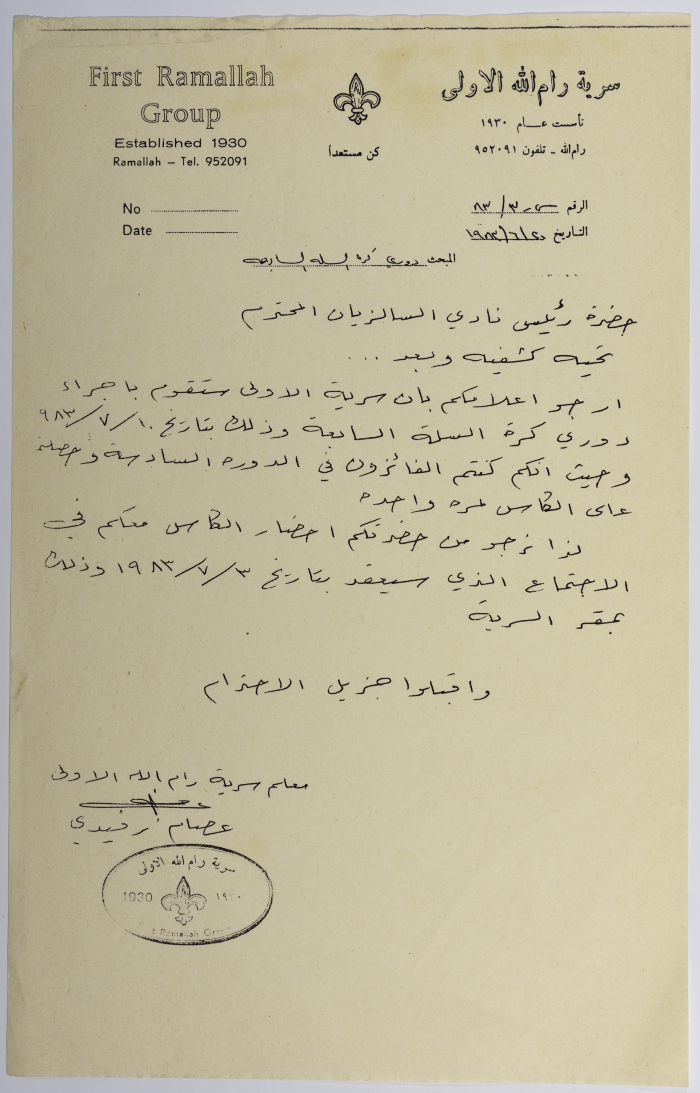 First Ramallah
Group
Established 1930
Ramallah – Tel. 952091
كن مستعداً
سرية رام الله الاولى
تأسست عـــام ١٩٣٠
رام الله ـ تلفون ٩٥٢٠٩١
No
Date
الرقم س ر /٣/ ٨٣
التـاريخ ٢٠/٦/١٩٨٣
المبحث دوري كرة السله السابعه
حضرة رئيس نادي السالزيان المحترم
تحيه كشفيه وبعد ...
ارجو اعلامكم بان سرية الاولى ستقوم باجراء
دوري كرة السلة السابعة وذلك بتاريخ ١٠/٧/٩٨٣
وحيث انكم كنتم الفائزون في الدوره السادسة وحصلتم
على الكاس لمره واحده
لذا نرجو من حضرتكم احضار الكاس معكم في
الاجتماع الذي سيعقد بتاريخ ٣/٧/١٩٨٣ وذلك
بمقر السرية
واقبلوا جزيل الاحترام
معلم سرية رام الله الاولى
عصام رفيدي
سرية رام الله الاولى
1930 ١٩٣٠
t Ramallah Group